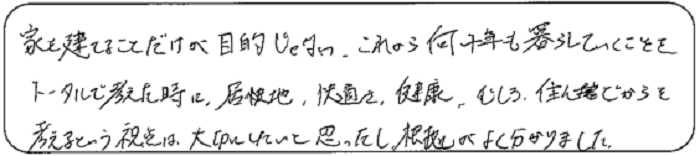 家を建てることだけが目的じゃない。これから何十年も暮らしていくことを
トータルで考えた時に、居心地、快適さ、健康、むしろ、住んでからを
考えるという視点は、大切にしたいと思ったし、根拠がよく分かりました。